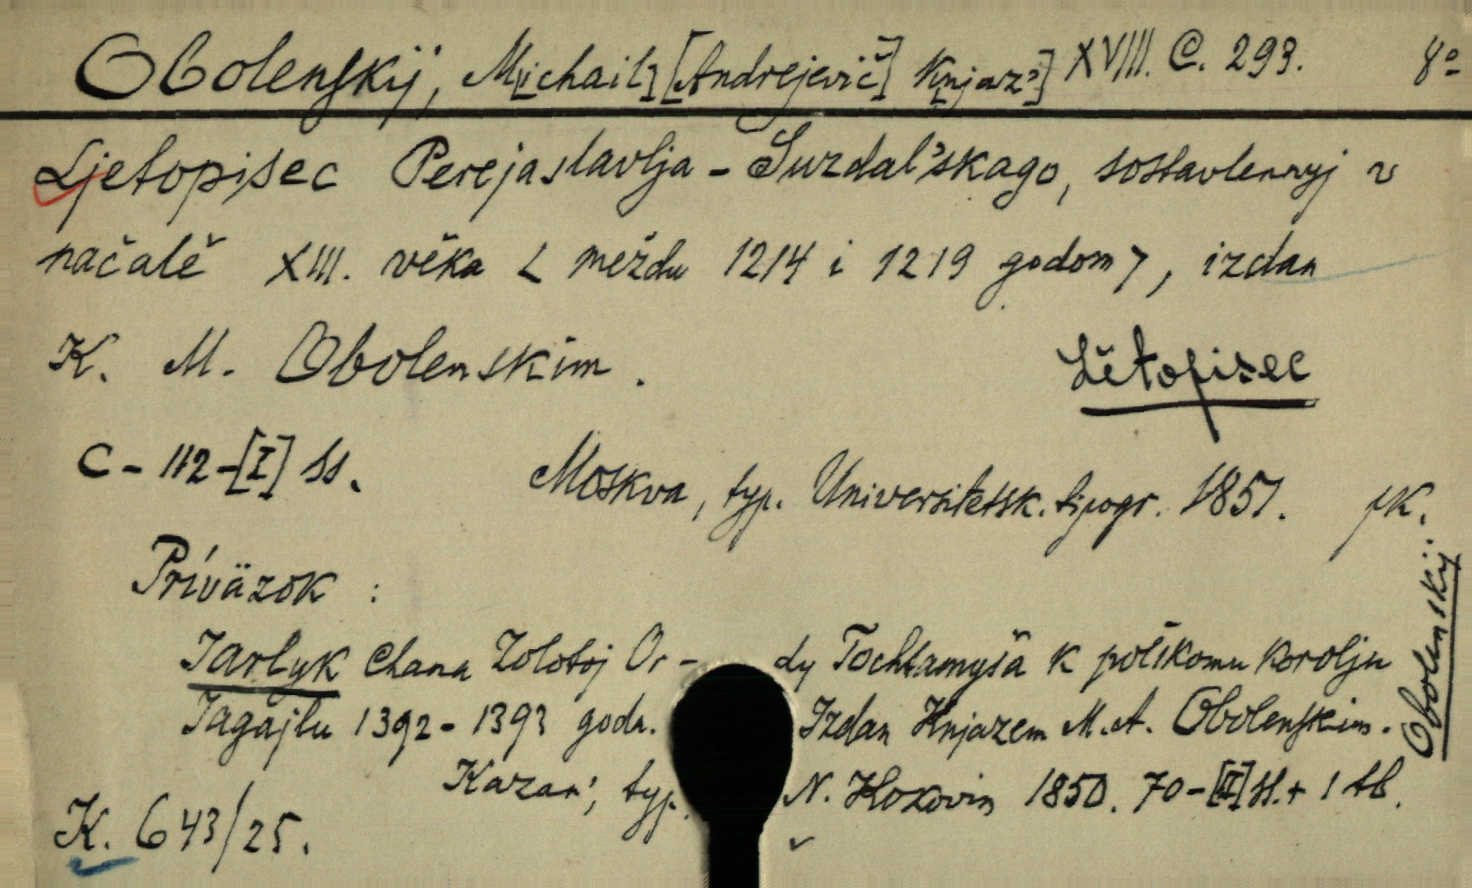 Obolenskij, M[ichail] [Andrejevič] K[njaz'] XVIII. C. 293. 8°
Ljetopisec Perejaslavlja - Suzdal'skago, sostavlennyj v
načalě XIII. věka < meždu 1214 i 1219 godom >, izdan
K. M. Obolenskim.
Lětopisec
C - 112 - [I] ss. Moskva, typ. Universitetsk. tipogr. 1851. pk.
Prívӓzok :
Jarlyk Chana Zolotoj Or - dy Tochtamyša k pol'skomu korolju
Jagajlu 1392 - 1393 goda. Izdan Knjazem M. A. Obolenskim.
Kazan', typ. N. Kokovin 1850. 70 - [II] ss. + 1 tb.
K. 643/25.
Obolenskij